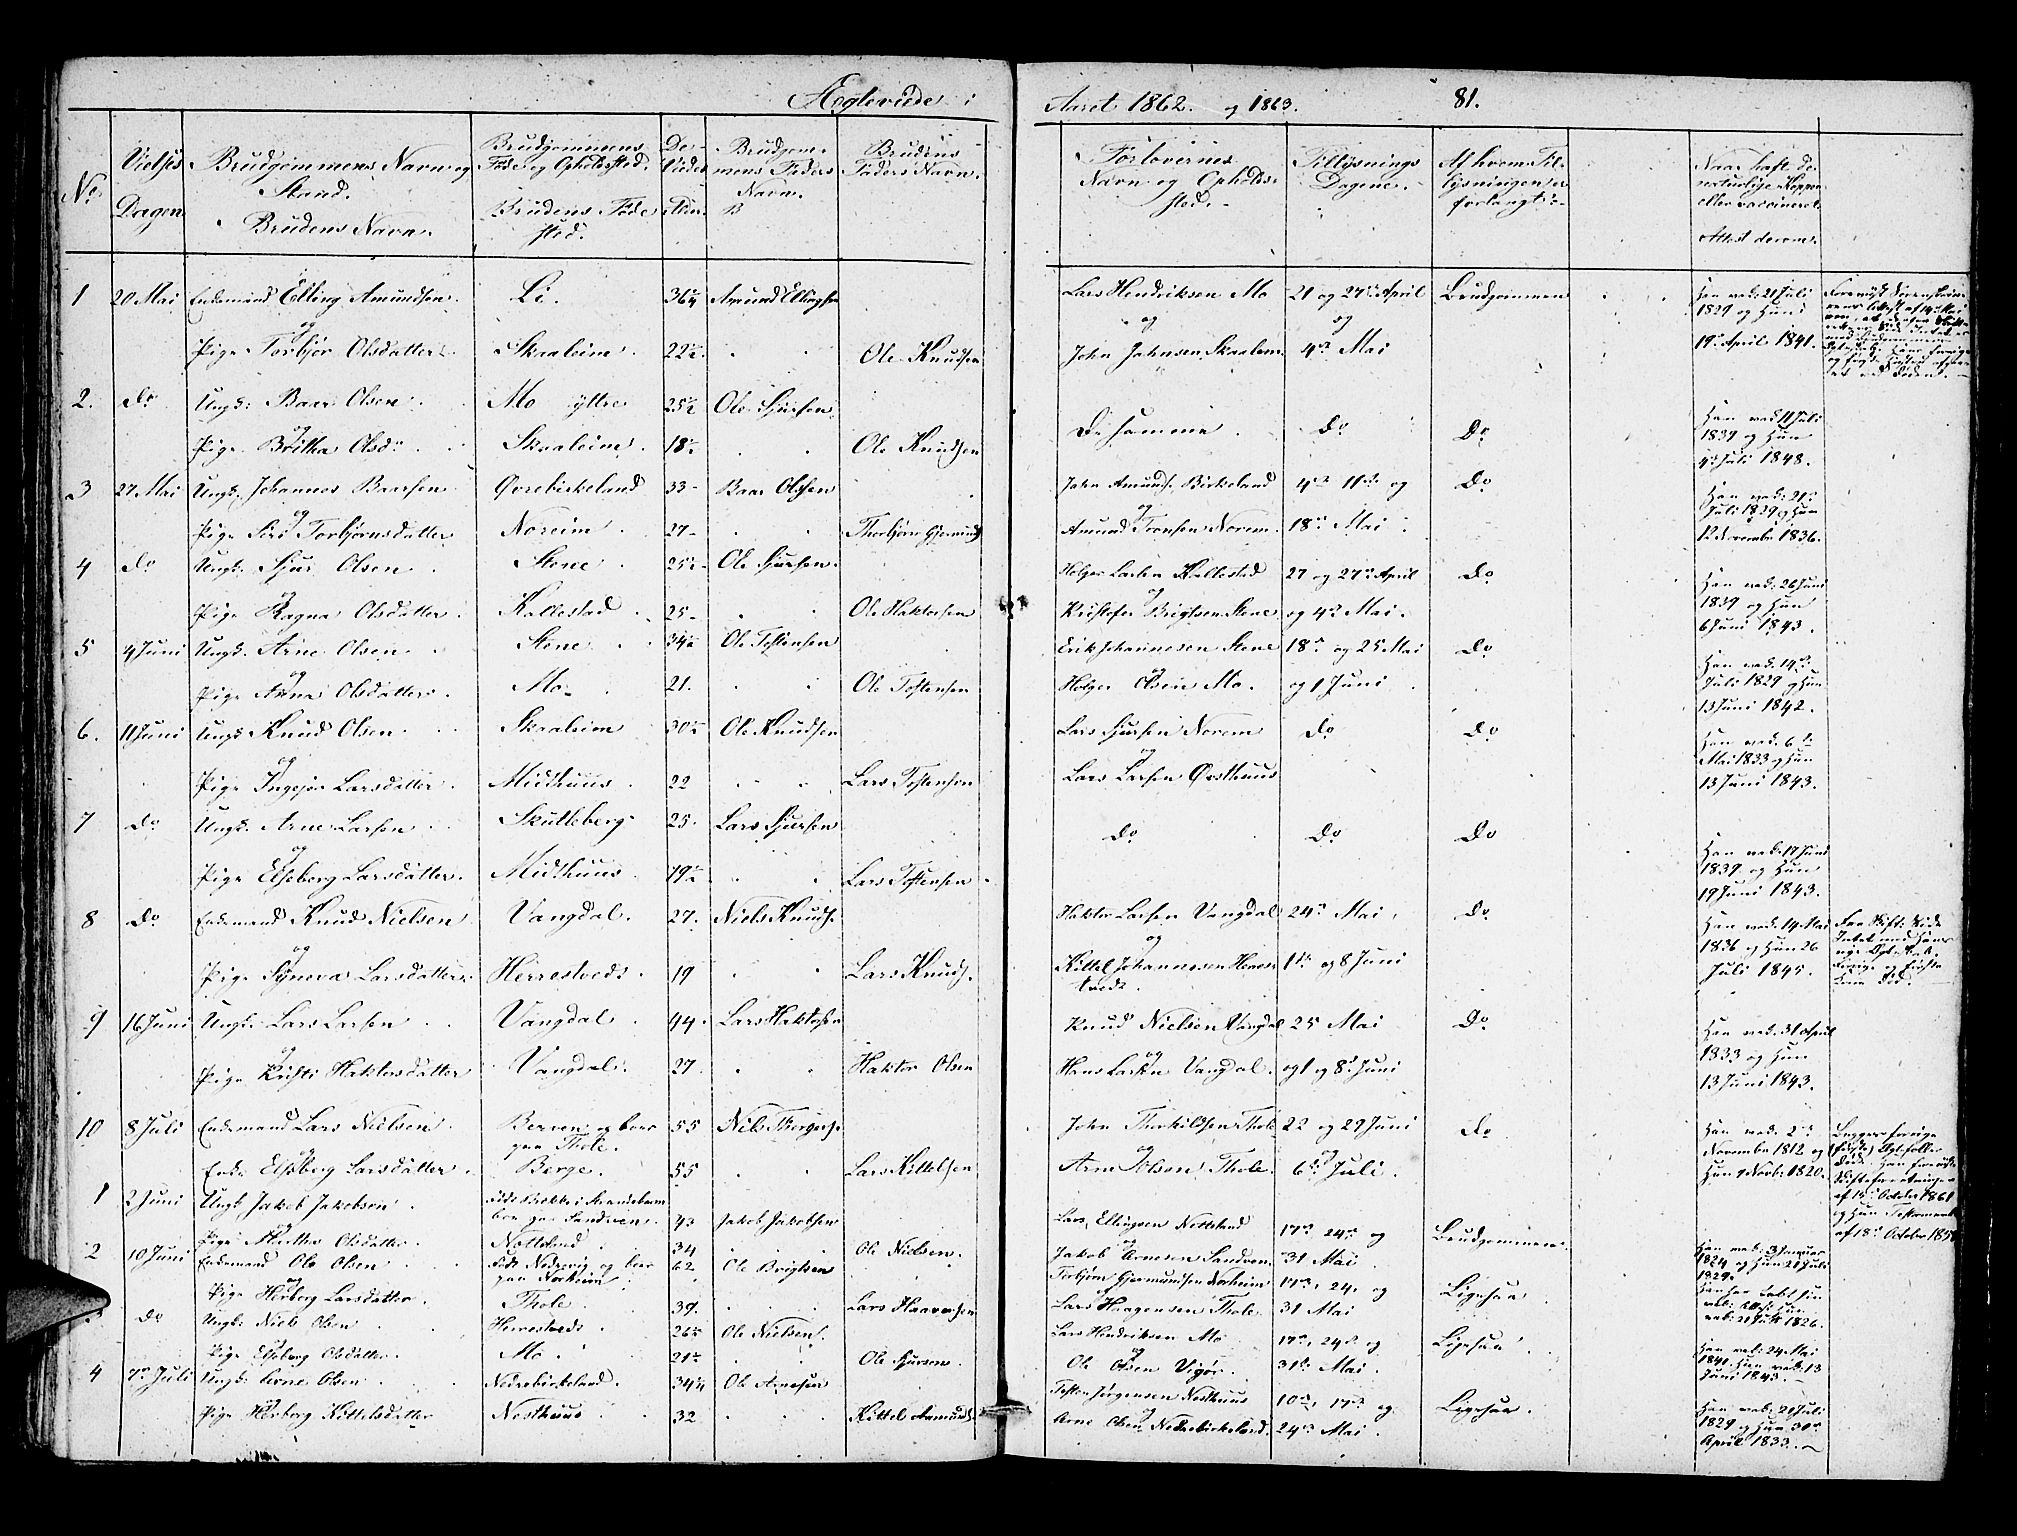 Ægteviede i Aaret 1862. og 1863. 81.
No. Vielses Dagen Brudgommens Navn og Stand. Brudens Navn. Brudgommens Føde og Opholdssted. Brudens Føde sted. De Viedes Alder Brudgommens Faders Navn. B Brudens Faders Navn. Forlovernes Navn og Opholdssted. Tillysnings Dagene. Af hvem Tillysningen er forlangt. Naar havt de naturlige Kopper eller vaccineret. Attest derom.
1 20 Mai Enkemand Elling Amundsen. Li. 36¼ Amund Ellingsen Lars Hendriksen Mo 21 og 27de April Brudgommen Han vac: 21 Juli 1829 og Hun
og og og
Pige Torbjør Olsdatter. Skaaleim. 22½ Ole Knudsen John Johnsen Skaaleim 4de Mai 19de April 1841.
2. Do Ungk: Baar Olsen Mo yttre 25½ Ole Sjursen De samme. Do Do Han vac: 11 Juli 1839 og Hun
og
Pige Britha Olsdr. Skaaleim. 18½ Ole Knudsen 4de Juli 1848.
3 27 Mai Ungk. Johannes Baarsen Øvrebirkeland 33 Baar Olsen John Amunds. Birkeland 4de 11te og Do Han vac: 21de Juli 1839 og Hun
og og
Pige Siri Torbjørnsdatter Noreim 27 Thorbjørn Gjermunds Amund Tronsen Norem. 18de Mai 12 November 1836.
4 Do Ungk. Sjur Olsen Stene 25½ Ole Sjursen. Holger Larsen Kallestad 27 og 27de April Do Han vac: 26 Juni 1839 og Hun
og og
Pige Ragna Olsdatter. Kallestad 25 Ole Haktorsen Kristofer Brigtsen Stene og 4de Mai. 6 Juni 1843.
5 4 Juni Ungk. Arne Olsen Stene 34½ Ole Tostensen Erik Johannesen Stene 18de og 25 Mai Do Han vac: 14de Juli 1829 og Hun
og og
Pige Anna Olsdatter. Mo 21. Ole Tostensen Holger Olsen Mo. og 1 Juni 13 Juni 1842.
6. 11 Juni Ungk. Knud Olsen Skaaleim 30½ Ole Knudsen Lars Sjursen Norem Do Do Han vac: 6te Mai 1833 og Hun
og og
Pige Ingejør Larsdatter. Midthuus 22 Lars Tostensen Lars Larsen Østhuus 13 Juni 1843.
7 Do Ungk. Arne Larsen Skutleberg 25. Lars Sjursen Do Do Do Han vac: 17 Juni 1839 og Hun
og
Pige Elseborg Larsdatter. Midthuus 19½ Lars Tostensen 19 Juni 1843.
8 Do Enkemand Knud Nielsen Vangdal. 27. Niels Knuds. Haktor Larsen Vangdal 24de Mai, Do Han vac: 14 Mai 1836 og Hun 26
og og
Pige Synøva Larsdatter. Herrestveds 19 Lars Knuds. Kittel Johannesen Herrestvedt. 1ste og 8 Juni Juli 1845.
9 16 Juni Ungk. Lars Larsen Vangdal 44. Lars Haktorsen Knud Nielsen Vangdal 25 Mai Do Han vac: 31 April 1833 og Hun
og og
Pige Kristi Haktorsdatter Vangdal. 27. Haktor Olsen Hans Larsen Vangdal. og 1 og 8de Juni 13 Juni 1843.
10 8 Juli Enkemand Lars Nielsen Berven og boer paa Thole. 55 Niels Thorgers. John Thorkildsen Thole 22 og 29 Juni Do Han vac: 2de November 1812 og
og og
Enke Elseborg Larsdatter. Berge. 55 Lars Kittelsen Arne Olsen Thole. 6te Juli. Hun 9 Novbr 1820.
1 2 Juni Ungk. Jakob Jakobsen. boer paa Sandven. 43 Jakob Jakobsen Lars Ellingsen Nottland 17de 24de og Brudgommen.
og og
Pige Martha Olsdatter. Notteland 34 Ole Nielsen. Jakob Arnesen Sandven. 31 Mai. Han vac: 3 Januar 1824 og Hun 21 Juli 1829.
2 10 Juni Enkemand Ole Olsen Født Nedrevig og boer paa Norheim. 62 Ole Brigtsen Torbjørn Gjermundsen Norheim 17de, 24. og Ligesaa.
og og
Pige Herborg Larsdatter. Thole. 39. Lars Haavarsen Lars Haagensen Thole. 31 Mai
3 Do Ungk. Niels Olsen Herrestveds. 26½ Ole Nielsen. Lars Hendriksen Mo 17de, 24de og Ligesaa.
og og
Pige Elseborg Olsdatter. Mo. 21½ Ole Sjursen. Ole Olsen Vigør. 31te Mai. Han vac: 24 Mai 1841. Hun vac: 13 Juni 1843.
4 7de Juli Ungk. Arne Olsen Nedrebirkeland. 34¼ Ole Arnesen Tosten Jørgensen Nesthuus 10de, 17de og Ligesaa.
og og
Pige Herborg Kittelsdatter Nesthuus 32 Kittel Aamunds. Arne Olsen Nedrebirkeland. 24de Mai. Han vac: 20 Juli 1829 og Hun 30te April 1833.